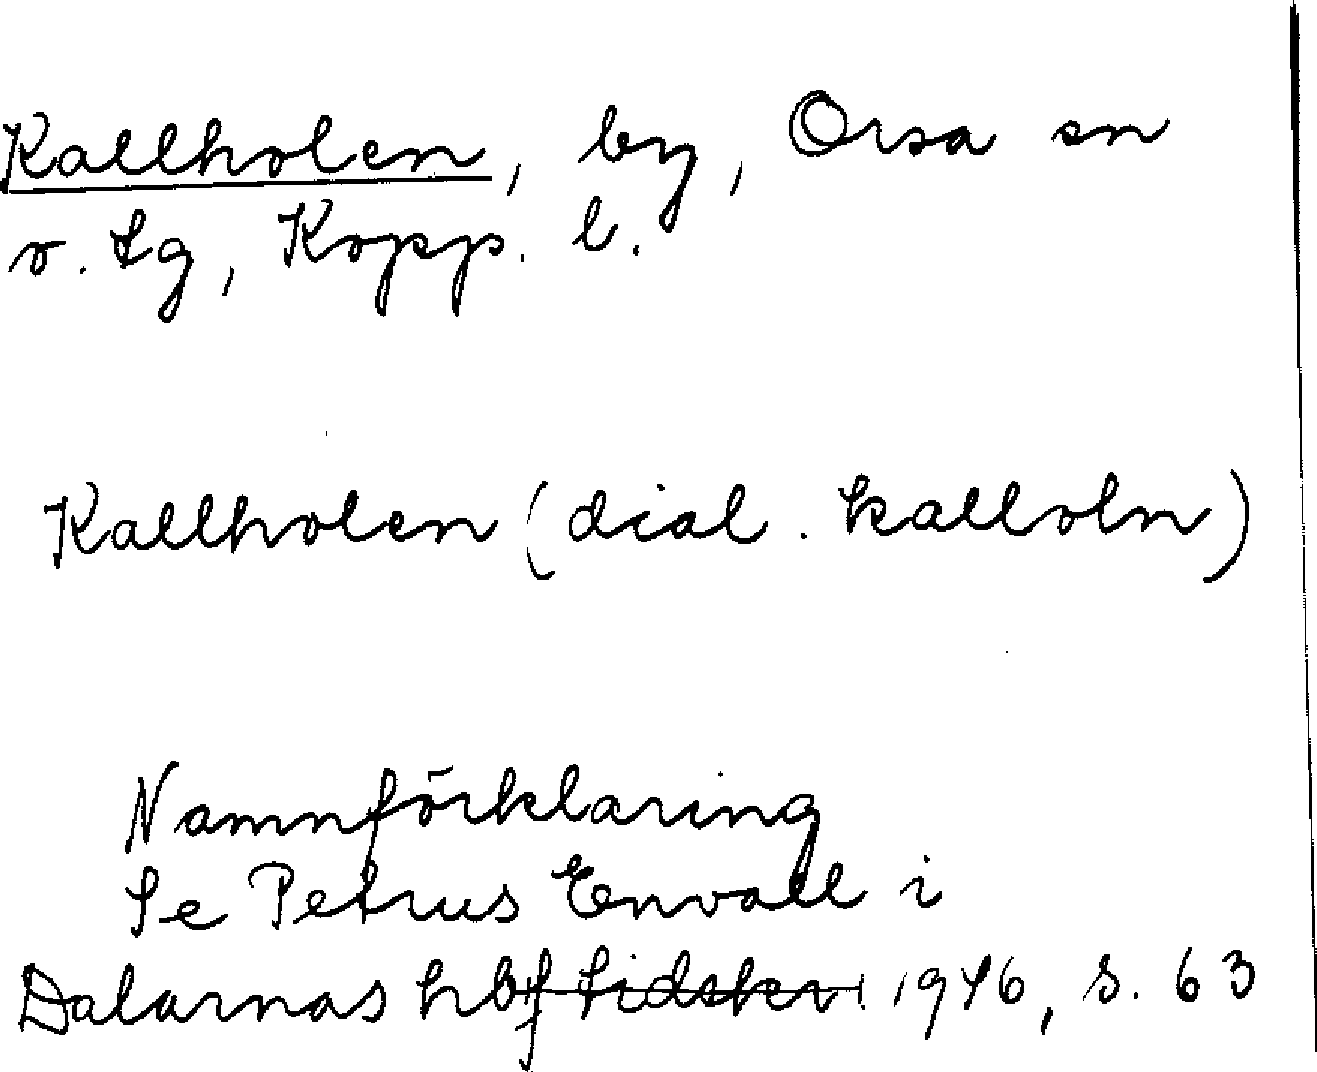 Kallholen, by, Orsa sn
o. tg, Kopp. l.
Kallholen (dial. kalloln)
Namnförklaring
Se Petrus Envall i
Dalarnas hbf tidskr. 1946, s. 63